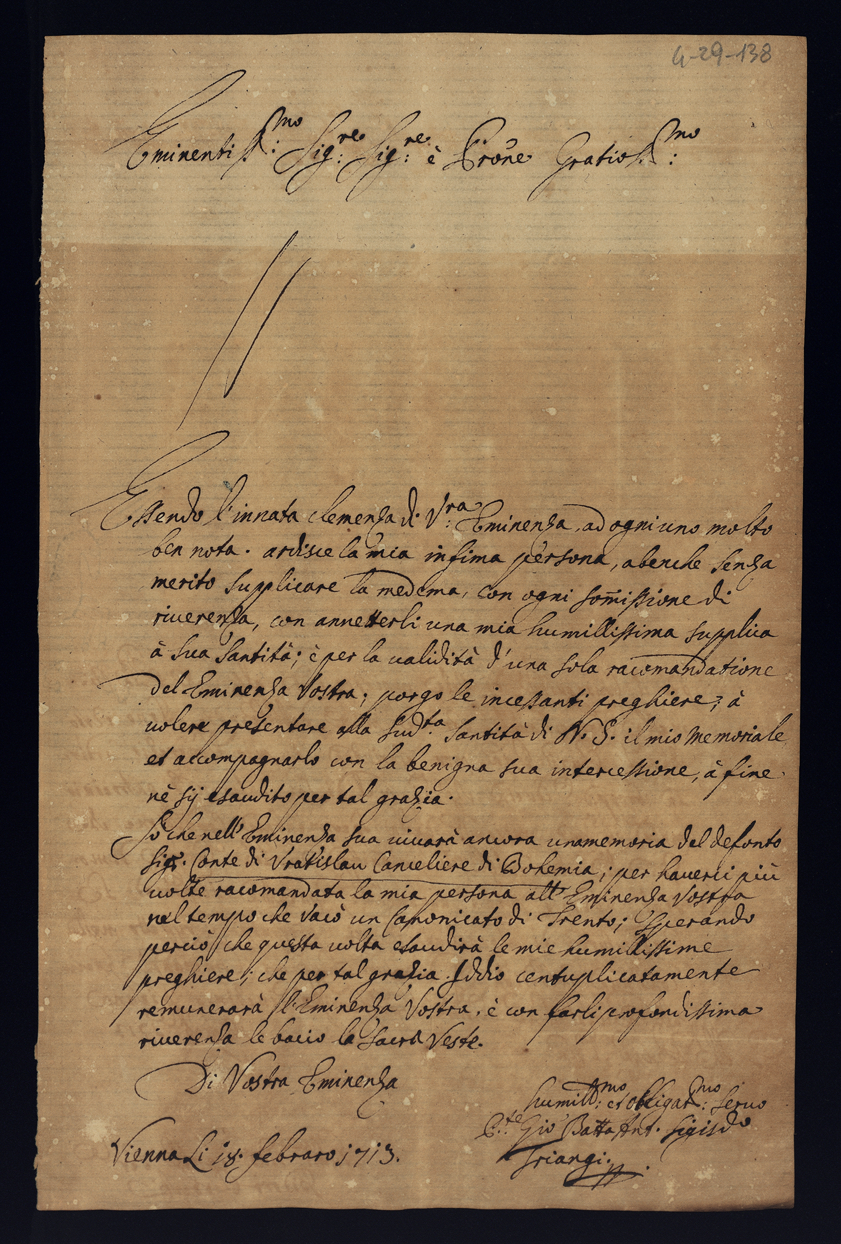 4-29-138
Eminentiss:mo Sig:re Sig:re è Prone Gratioss:mo
Essendo l'innata clemenza di V:ra Eminenza, ad ogni uno molto
ben nota. ardisce la mia infima persona, abenche senza
merito supplicare la medema, con ogni somissione di
riverenza, con annetterli una mia humillissima supplica
à sua Santità; è per la validità d'una sola racomandatione
del Eminenza Vostra; porgo le incessanti preghiere; à
volere presentare alla sud:ta Santità di N. S. il mio Memoriale
et accompagnarlo con la benigna sua intercessione, à fine
nè sij esaudito per tal grazia.
Sò che nell'Eminenza sua vivarà ancora una memoria del defonto
Sig: Conte di Vratislau Canceliere di Bohemia; per haverci più
volte racomandata la mia persona all'Eminenza Vostra
nel tempo che vacò un Canonicato di Trento; Sperando
perciò che questa volta esaudirà le mie humillissime
preghiere; che per tal grazia Iddio centuplicatamente
remunerarà l'Eminenza Vostra, è con farli profondissima
riverenza le bacio la Sacra Veste.
Di Vostra Eminenza
humill:mo et obligat:mo Servo
C:te Gio Batta Ant. Sigis:do
Vienna Li 18. febraro 1713.
Triangi.